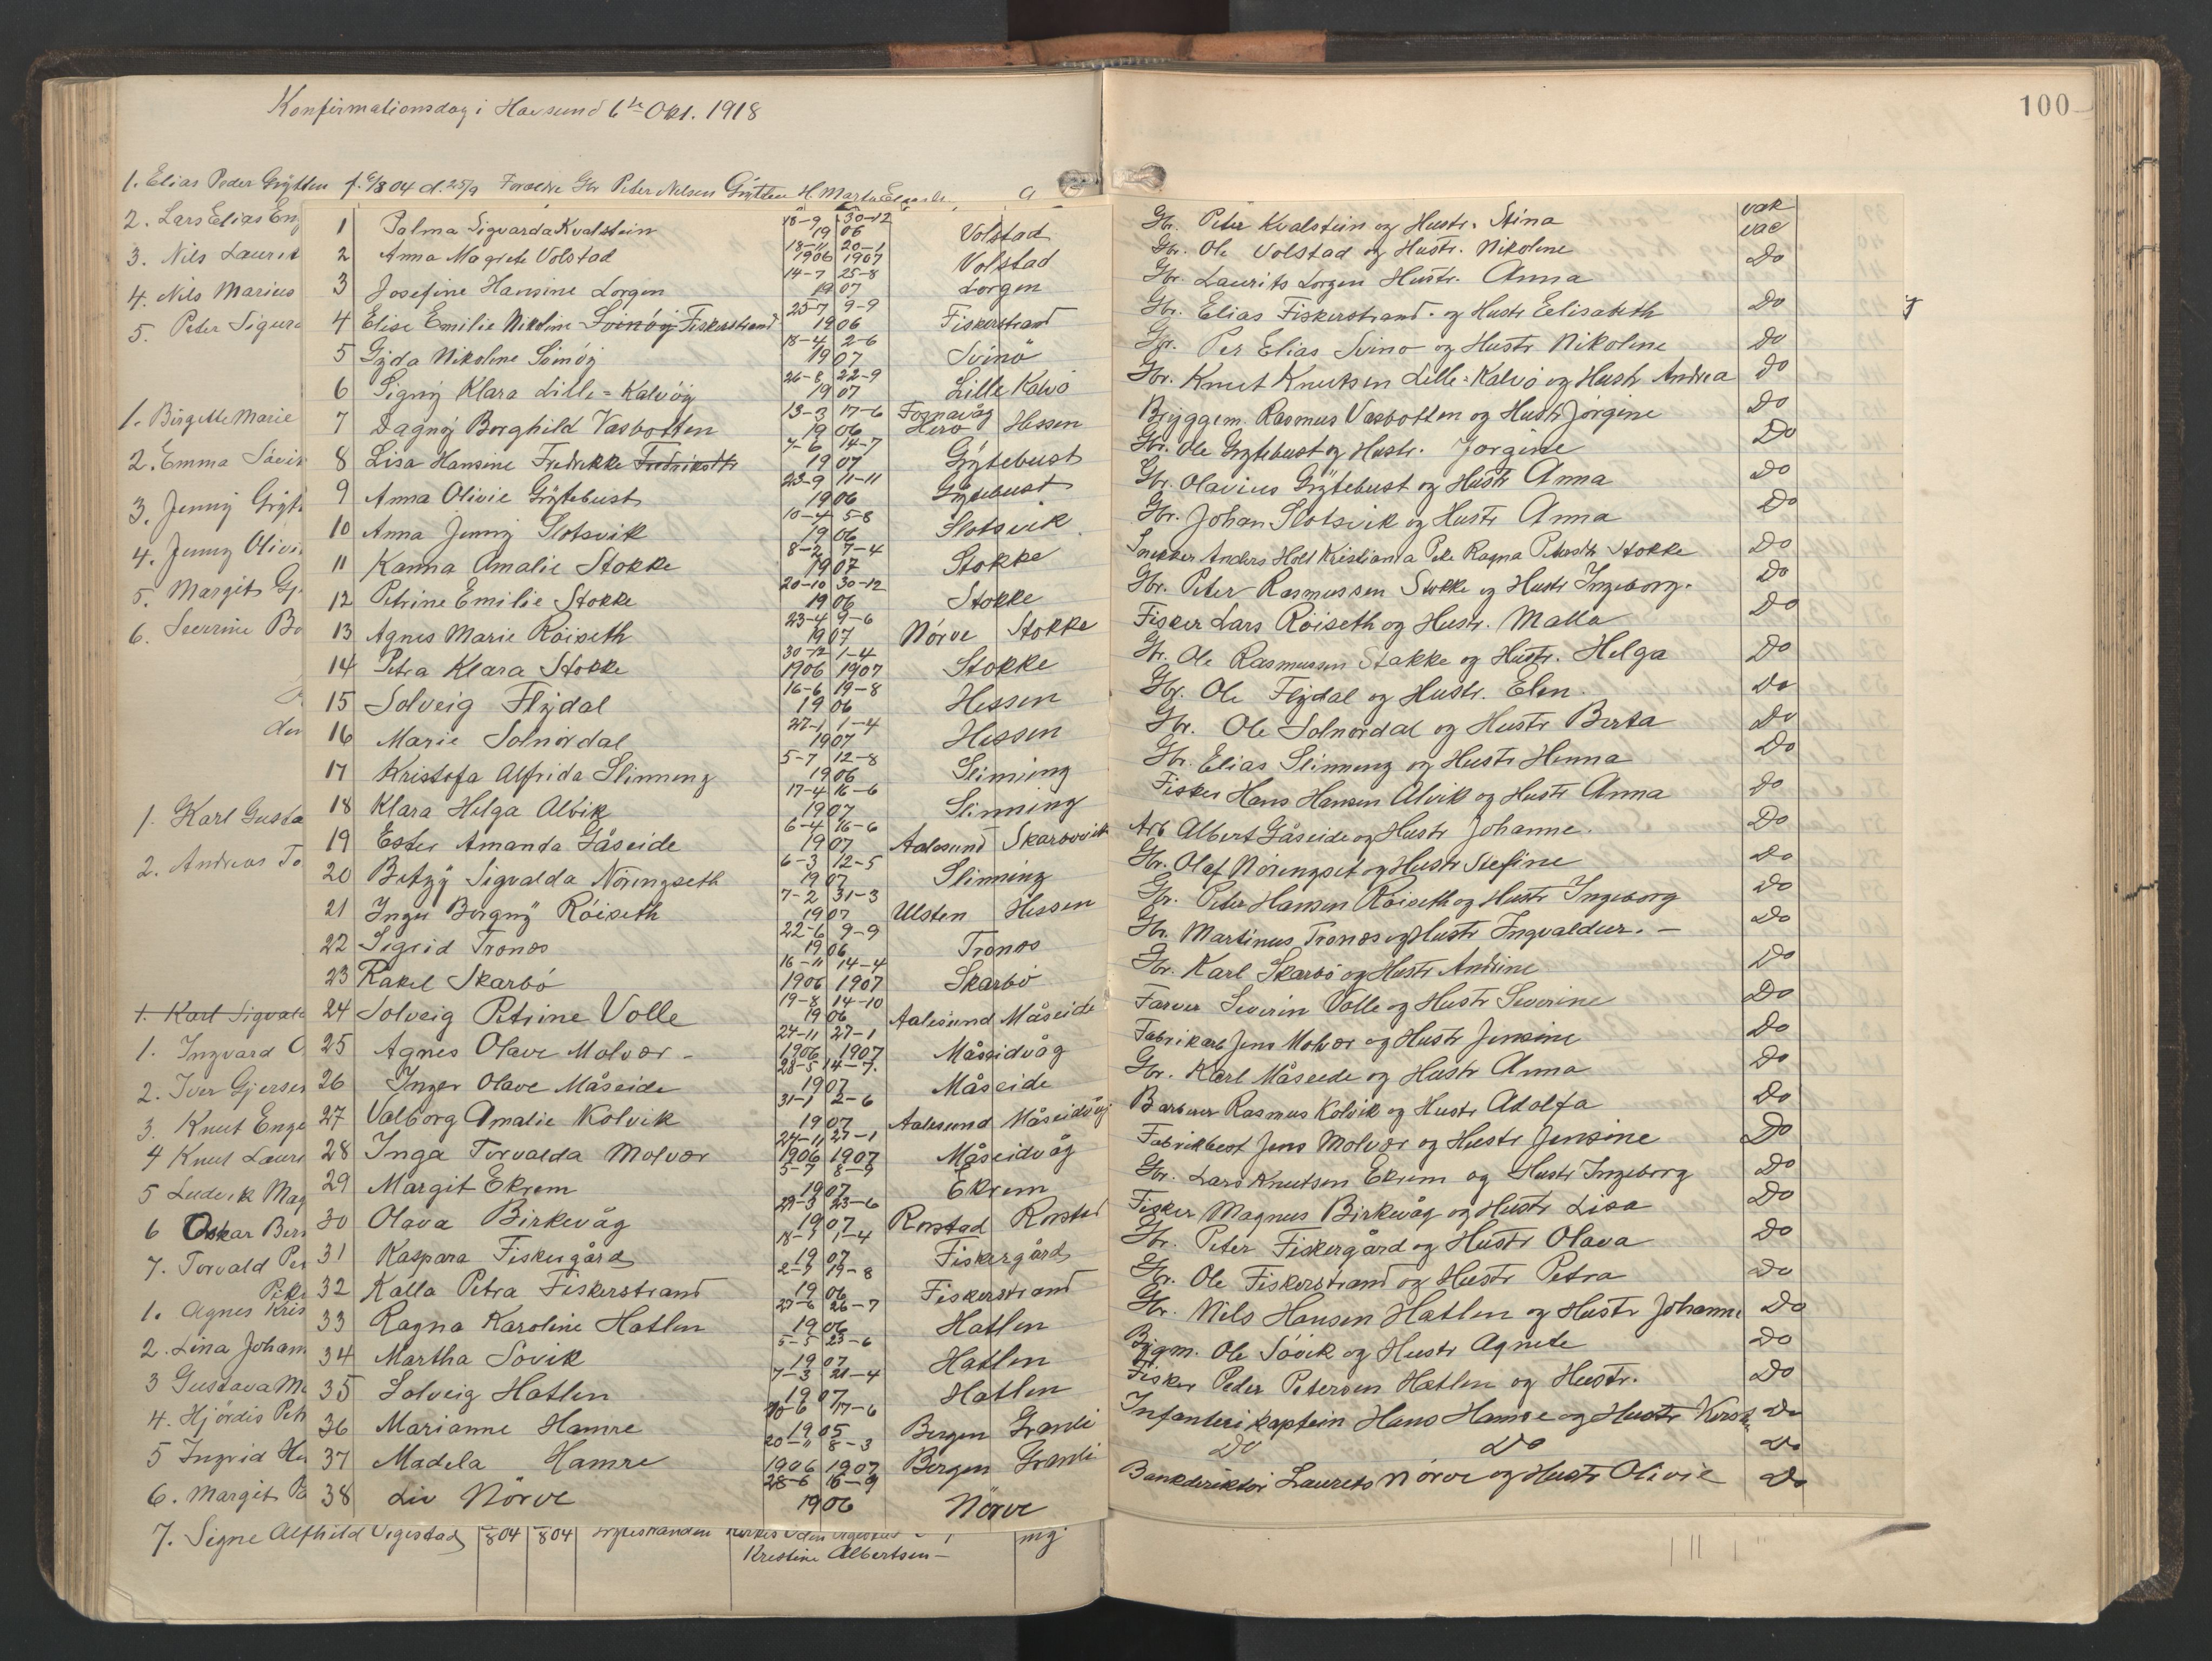 Konfirmationsdag i Haesund 6te Okt. 1918
100
1. Elias Peder Grytten f. 6/8 04 d. 25/9 Forældre Gbr Peter Nelsen Grytten H. Marta
2. Lars Elias Eng
3. Nils Laurit
4. Nils Marius
5. Peter Sigur
1. Birgitte Marie
2. Emma Sävi
3. Jenny Gryt
4. Jenny Olivi
5. Margit Gj
6. Severine Bo
den
1. Karl Gusta
2. Andreas To
1. Karl Sigvald
1. Ingvard O
2. Iver Gjerse
3. Knut Enge
4 Knut Laur
5 Ludvik Mag
6 Oskar Ber
7. Torvald Pe
Pike
1. Agnes Kris
2. Lina Johan
3 Gustava Ma
4. Hjördis Pet
5 Ingrid He
6. Margit Pa
7. Signe Alfhild Vegestad 804 804
Kristine Albertsen —
1 Palma Sigvarda Kvalstein 18-9 30-12 1906 Volstad Gbr. Peter Kvalstein og Hustr. Stina vak
2 Anna Magrete Volstad 18-11 1906 20-1 1907 Volstad Gbr. Ole Volstad og Hustr. Nikoline vac
3 Josefine Hansine Lorgen 14-7 25-8 1907 Lorgen Gbr. Laurits Lorgen Hustr. Anna Do
4 Elise Emilie Nikoline Svinöy Fiskerstrand 25-7 9-9 1906 Fiskerstrand Gbr. Elias Fiskerstrand. og Hustr Eelisabeth Do
5 Gyda Nikoline Svinöy 18-4 2-6 1907 Svinö Gbr. Per Elias Svino og Hustr Nikoline Do
6 Signy Klara Lille=Kalvöy 26-8 22-9 1907 Lille Kalvö Gbr. Knut Knutsen Lille=Kalvö og Hustr Andrea Do
7 Dagny Borghild Vasbotten 13-3 17-6 1906 Fosnavåg Herö Hessen Bryggem. Rasmus Vasbotten og Hustr Jörgine Do
8 Lisa Hansine Fredrikke Fredriksdtr 7-6 14-7 1907 Grytebust Gbr. Ole Grytebust og Hustr. Jorgine Do
9 Anna Olivie Grytebust 23-9 11-11 1906 Grytebust Gbr. Olavius Grytebust og Hustr Anna Do
10 Anna Jenny Slotsvik 10-4 5-8 1906 Slotsvik Gbr. Johan Slotsvik og Hustr Anna Do
11 Kanna Amalie Stokke 8-2 7-4 1907 Stokke Snekker Anders Holt Kristiania Pike Ragna Petersdtr Stokke Do
12 Petrine Emilie Stokke 20-10 30-12 1906 Stokke Gbr. Peter Rasmussen Stokke og Hustr Ingeborg. Do
13 Agnes Marie Röiseth 23-4 9-6 1907 Nörve Stokke Fisker Lars Röiseth og Hustr. Malla Do
14 Petra Klara Stokke 30-12 1906 1-4 1907 Stokke Gbr. Ole Rasmussen Stakke og Hustr. Helga Do
15 Solveig Flydal 16-6 19-8 1906 Hessen Gbr. Ole Flydal og Hustr. Elen. Do
16 Marie Solnördal 27-1 1-4 1907 Hessen Gbr. Ole Solnördal og Hustr Berta Do
17 Kristofa Alfrida Slinning 5-7 12-8 1906 Slinning Gbr. Elias Slinning og Hustr Hanna Do
18 Klara Helga Alvik 17-4 16-6 1907 Slinning Fisker Hans Hansen Alvik og Hustr Anna Do
19 Ester Amanda Gåseide 6-4 16-6 1907 Aalesund Skarbövik Arb Albert Gåseide og Hustr Johanne. Do
20 Betzy Sigvalda Nöringseth 6-3 12-5 1907 Slinning Gbr. Olaf Nöringset og Hustr Stefine Do
21 Inger Borgny Röiseth 7-2 31-3 1907 Ulsten Hessen Gbr. Peter Hansen Röiseth og Hustr Ingeborg Do
22 Sigrid Tronæs 22-6 9-9 1906 Tronæs Gbr. Martinus Tronæs og Hustr Ingvaldur. — Do
23 Rakel Skarbö 16-11 1906 14-4 1907 Skarbö Gbr. Karl Skarbö og Hustr Andrine Do
24 Solveig Petrine Volle 19-8 14-10 1906 Aalesund Måseide Farver Severin Volle og Hustr Severine Do
25 Agnes Olave Molvær - 24-11 1906 27-1 1907 Måseidvåg Fabrikarb Jens Molvær og Hustr Jensine Do
26 Inger Olave Måseide 28-5 14-7. 1907 Måseide Gbr. Karl Måseide og Hustr Anna Do
27 Valborg Amalie Kolvik 31-1 2-6 1907 Aalesund Måseidvåg Barberer Rasmus Kolvik og Hustr Adolfa Do
28 Inga Torvalda Molvær 24-11 1906 27-1 1907 Måseidvåg Fabrikbest Jens Molvær og Hustr Jensine Do
29 Margit Ekrem 5-7 8-9 1907 Ekrem Gbr. Lars Knutsen Ekrem og Hustr Ingeborg Do
30 Olava Birkevåg 29-3 23-6 1907 Rorstad Rorstad Fisker Magnus Birkevåg og Hustr Lisa Do
31 Kaspara Fiskergård 1-4 1907 Fiskergård Gbr. Peter Fiskergård og Hustr Olava Do
32 Kalla Petra Fiskerstrand 19-8 1906 Fiskerstrand Gbr. Ole Fiskerstrand og Hustr Petra Do
33 Ragna Karoline Hatlen 27-6 26-7 1906 Hatlen Gbr. Nils Hansen Hatlen og Hustr Johanne Do
34 Martha Sovik 5-5 23-6 1907 Hatlen Bygm. Ole Sövik og Hustr Agnete Do
35 Solveig Hatlen 7-3 21-4 1907 Hatlen Fisker Peder Petersen Hatlen og Hustr. Do
36 Marianne Hamre 17-6 1905 Bergen Grandi Infanteri kaptein Hans Hamre og Hustr Do
37 Madela Hamre 20-11 1906 8-3 1907 Bergen Grandi Do Do Do
38 Liv Nörve 28-6 16-9 1906 Nörve Bankdirektör Laurets Nörve og Hustr Olivie Do